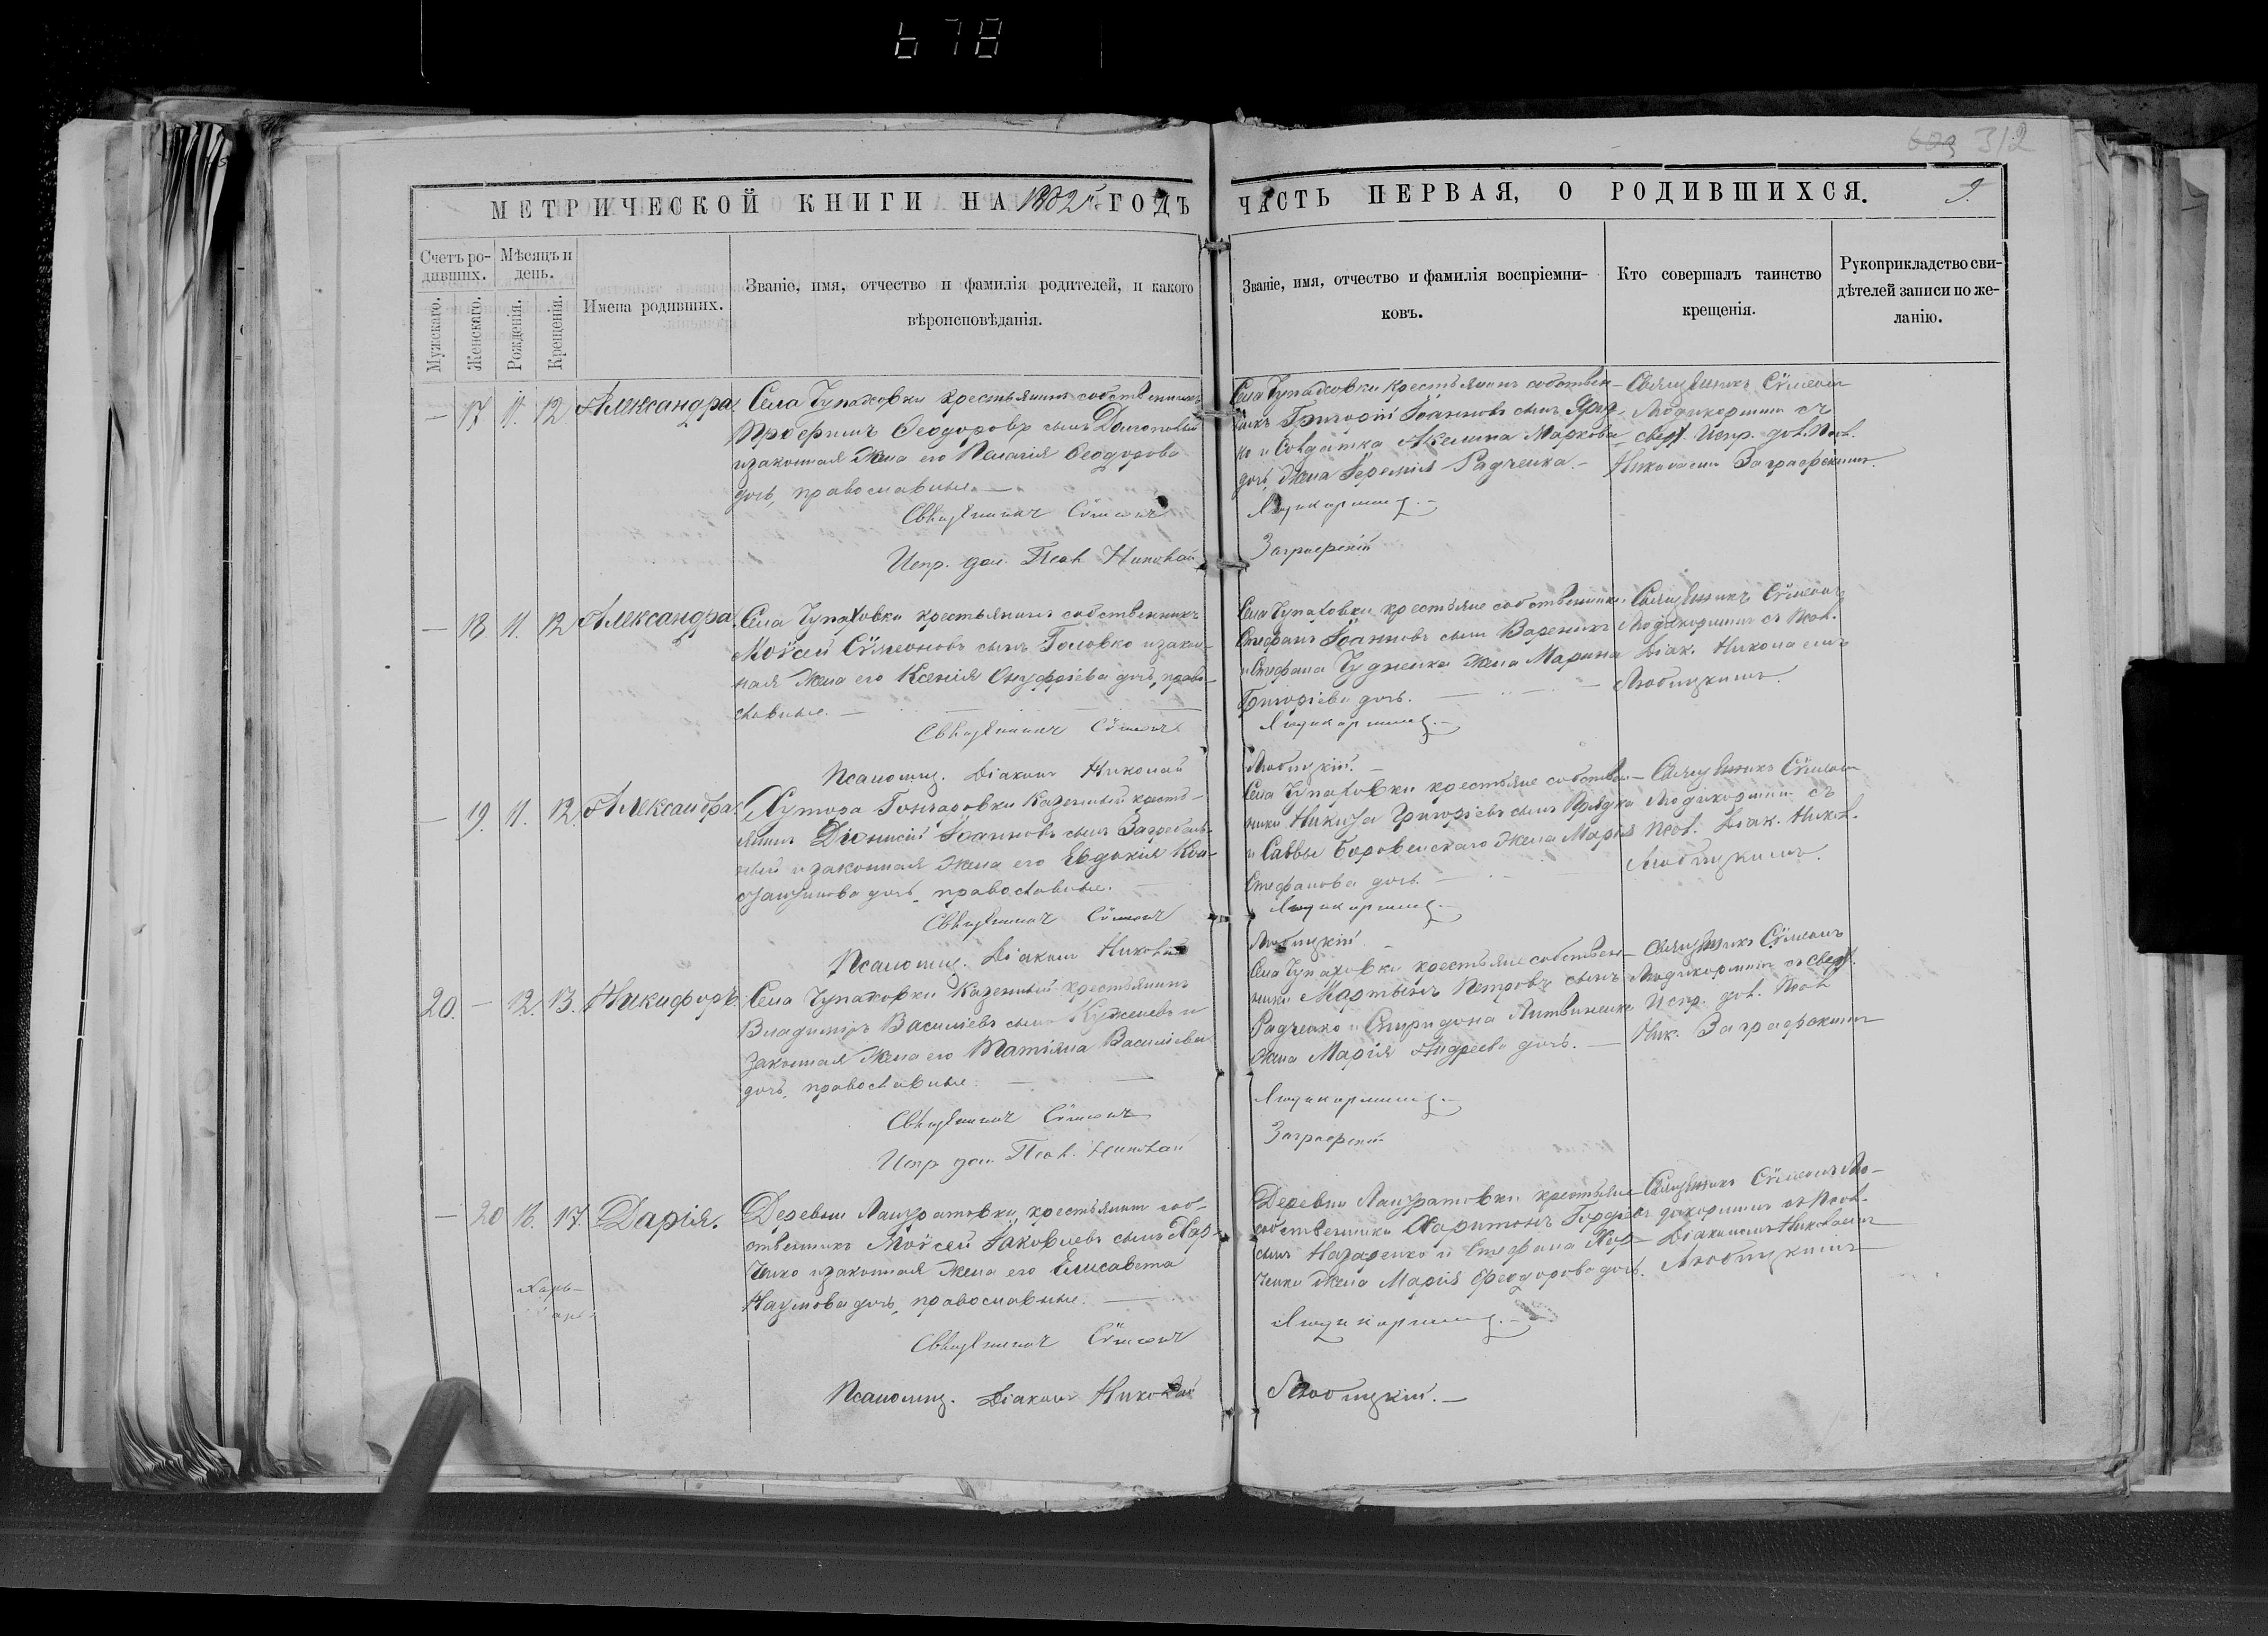 678
609 312
МЕТРИЧЕСКОЙ КНИГИ НА 1882й ГОДЪ
ЧАСТЬ ПЕРВАЯ, О РОДИВШИХСЯ.
9.
Счетъ ро-
дивших.
Мѣсяцъ и
день.
Мужскаго.
Женскаго.
Рожденія.
Крещенія.
Имена родивших.
Званіе, имя, отчество и фамилія родителей, и какого
вѣроисповѣданія.
Званіе, имя, отчество и фамилія воспріемни-
ковъ.
Кто совершалъ таинство
крещенія.
Рукоприкладство сви-
дѣтелей записи по же-
ланію.
— 17 11. 12 Александра.
Села Чупаховки крестьянинъ собственникъ
Трофимъ Ѳеодоровъ сынъ
и законная жена его Пелагія Ѳеодорова
дочь, православные. —
Священникъ Сѵмеонъ
Испр. дол. Псал. Николай
Села Чупаховки крестьянинъ собствен-
никъ Григорій Іоанновъ сынъ Пряд-
ко и Солдатка Акилина Маркова
дочь, жена Іереміи Радченка. —
Людикорминъ. —
Заграфскій
Священникъ Сѵмеонъ
Людикорминъ съ
сверх. Испр. дол. Псал.
Николаемъ Заграфскимъ.
— 18 11. 12 Александра.
Села Чупаховки крестьянинъ собственникъ
Моѵсей Сѵмеоновъ сынъ Головко и закон-
ная жена его Ксенія Онуфріева дочь, право-
славные. —
Священникъ Сѵмеонъ
Псаломщ. Діаконъ Николай
Села Чупаховки крестьяне собственники
Стефанъ Іоанновъ сынъ Вареникъ
и Стефана Чудненка жена Марина
Григоріева дочь. —
Людикорминъ. —
Любицкій. —
Священникъ Сѵмеонъ
Людикорминъ съ Псал.
Діак. Николаемъ
Любицкимъ.
— 19. 11. 12. Александра.
Хутора Гончаровки Казенный кресть-
янинъ Діонисій Іоанновъ сынъ
и законная жена его Евдокія
дочь, православные.
Священникъ Сѵмеонъ
Псаломщ. Діаконъ Николай
Села Чупаховки крестьяне собствен-
ники Никита Григоріевъ сынъ Прядка
и Саввы Боровенскаго жена Марія
Стефанова дочь. —
Людикорминъ. —
Любицкій —
Священникъ Сѵмеонъ
Людикорминъ съ
Псал. Діак. Никол.
Любицкимъ.
20. — 12. 13. Никифоръ
Села Чупаховки Казенный крестьянинъ
Владиміръ Василіевъ сынъ и
законная жена его Татіана Василіева
дочь, православные. —
Священникъ Сѵмеонъ
Испр. дол. Псал. Николай
Села Чупаховки крестьяне собствен-
ники Мартынъ Петровъ сынъ
Радченко и Спиридона Литвиненка
жена Марія Андреева дочь. —
Людикорминъ. —
Заграфскій
Священникъ Сѵмеонъ
Людикорминъ съ сверх.
Испр. дол. Псал
Ник. Заграфскимъ
— 20 13. 17. Дарія.
Деревни крестьянинъ соб-
ственникъ Моѵсей Іаковлевъ сынъ Хар-
ченко и законная жена его Елисавета
Наумова дочь, православные. —
Священникъ Сѵмеонъ
Псаломщ. Діаконъ Николай
Деревни крестьяне
собственники Харитонъ Гордіевъ
сынъ Назаренко и Стефана Хар-
ченка жена Марія Ѳеодорова дочь.
Людикорминъ. —
Любицкій. —
Священникъ Сѵмеонъ Лю-
дикорминъ съ Псал.
Діакономъ Николаемъ
Любицкимъ